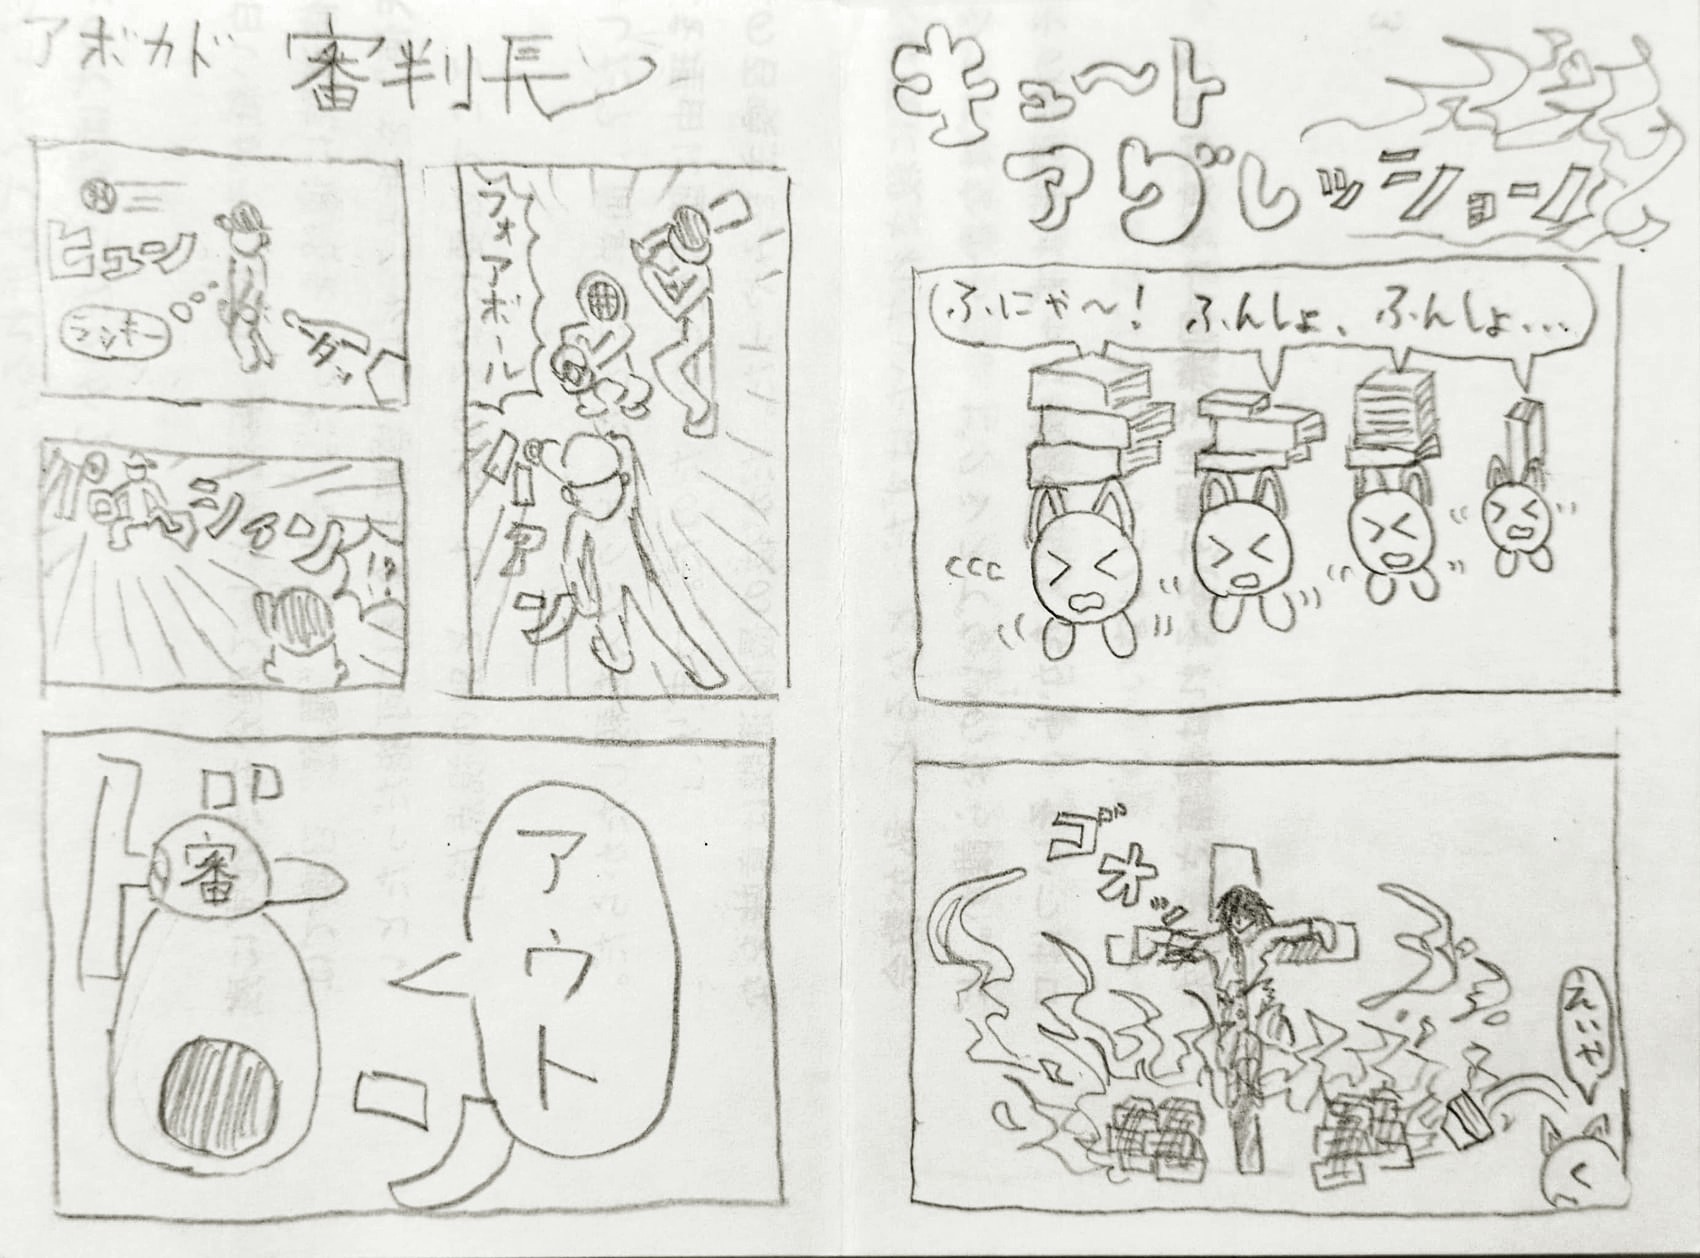 キュート
アグレッション
ふにゃ〜! ふんしょ、ふんしょ…
ゴオッ
えいや
アボカド 審判長
フォアボール
ヒュン
ラッキー
ダッ
バシィン
!?
審
アウト